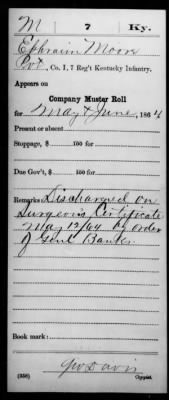 M 7 Ky.
Ephraim Moore
Pvt., Co. I, 7 Reg't Kentucky Infantry.
Appears on
Company Muster Roll
for May & June, 1864
Present or absent
Stoppage, $ 100 for
Due Gov't, $ 100 for
Remarks: Discharged on
Surgeons Certificate
May 12/64 by order
of Genl Banks.
Book mark:
Geo Davis
(358) Copyist.